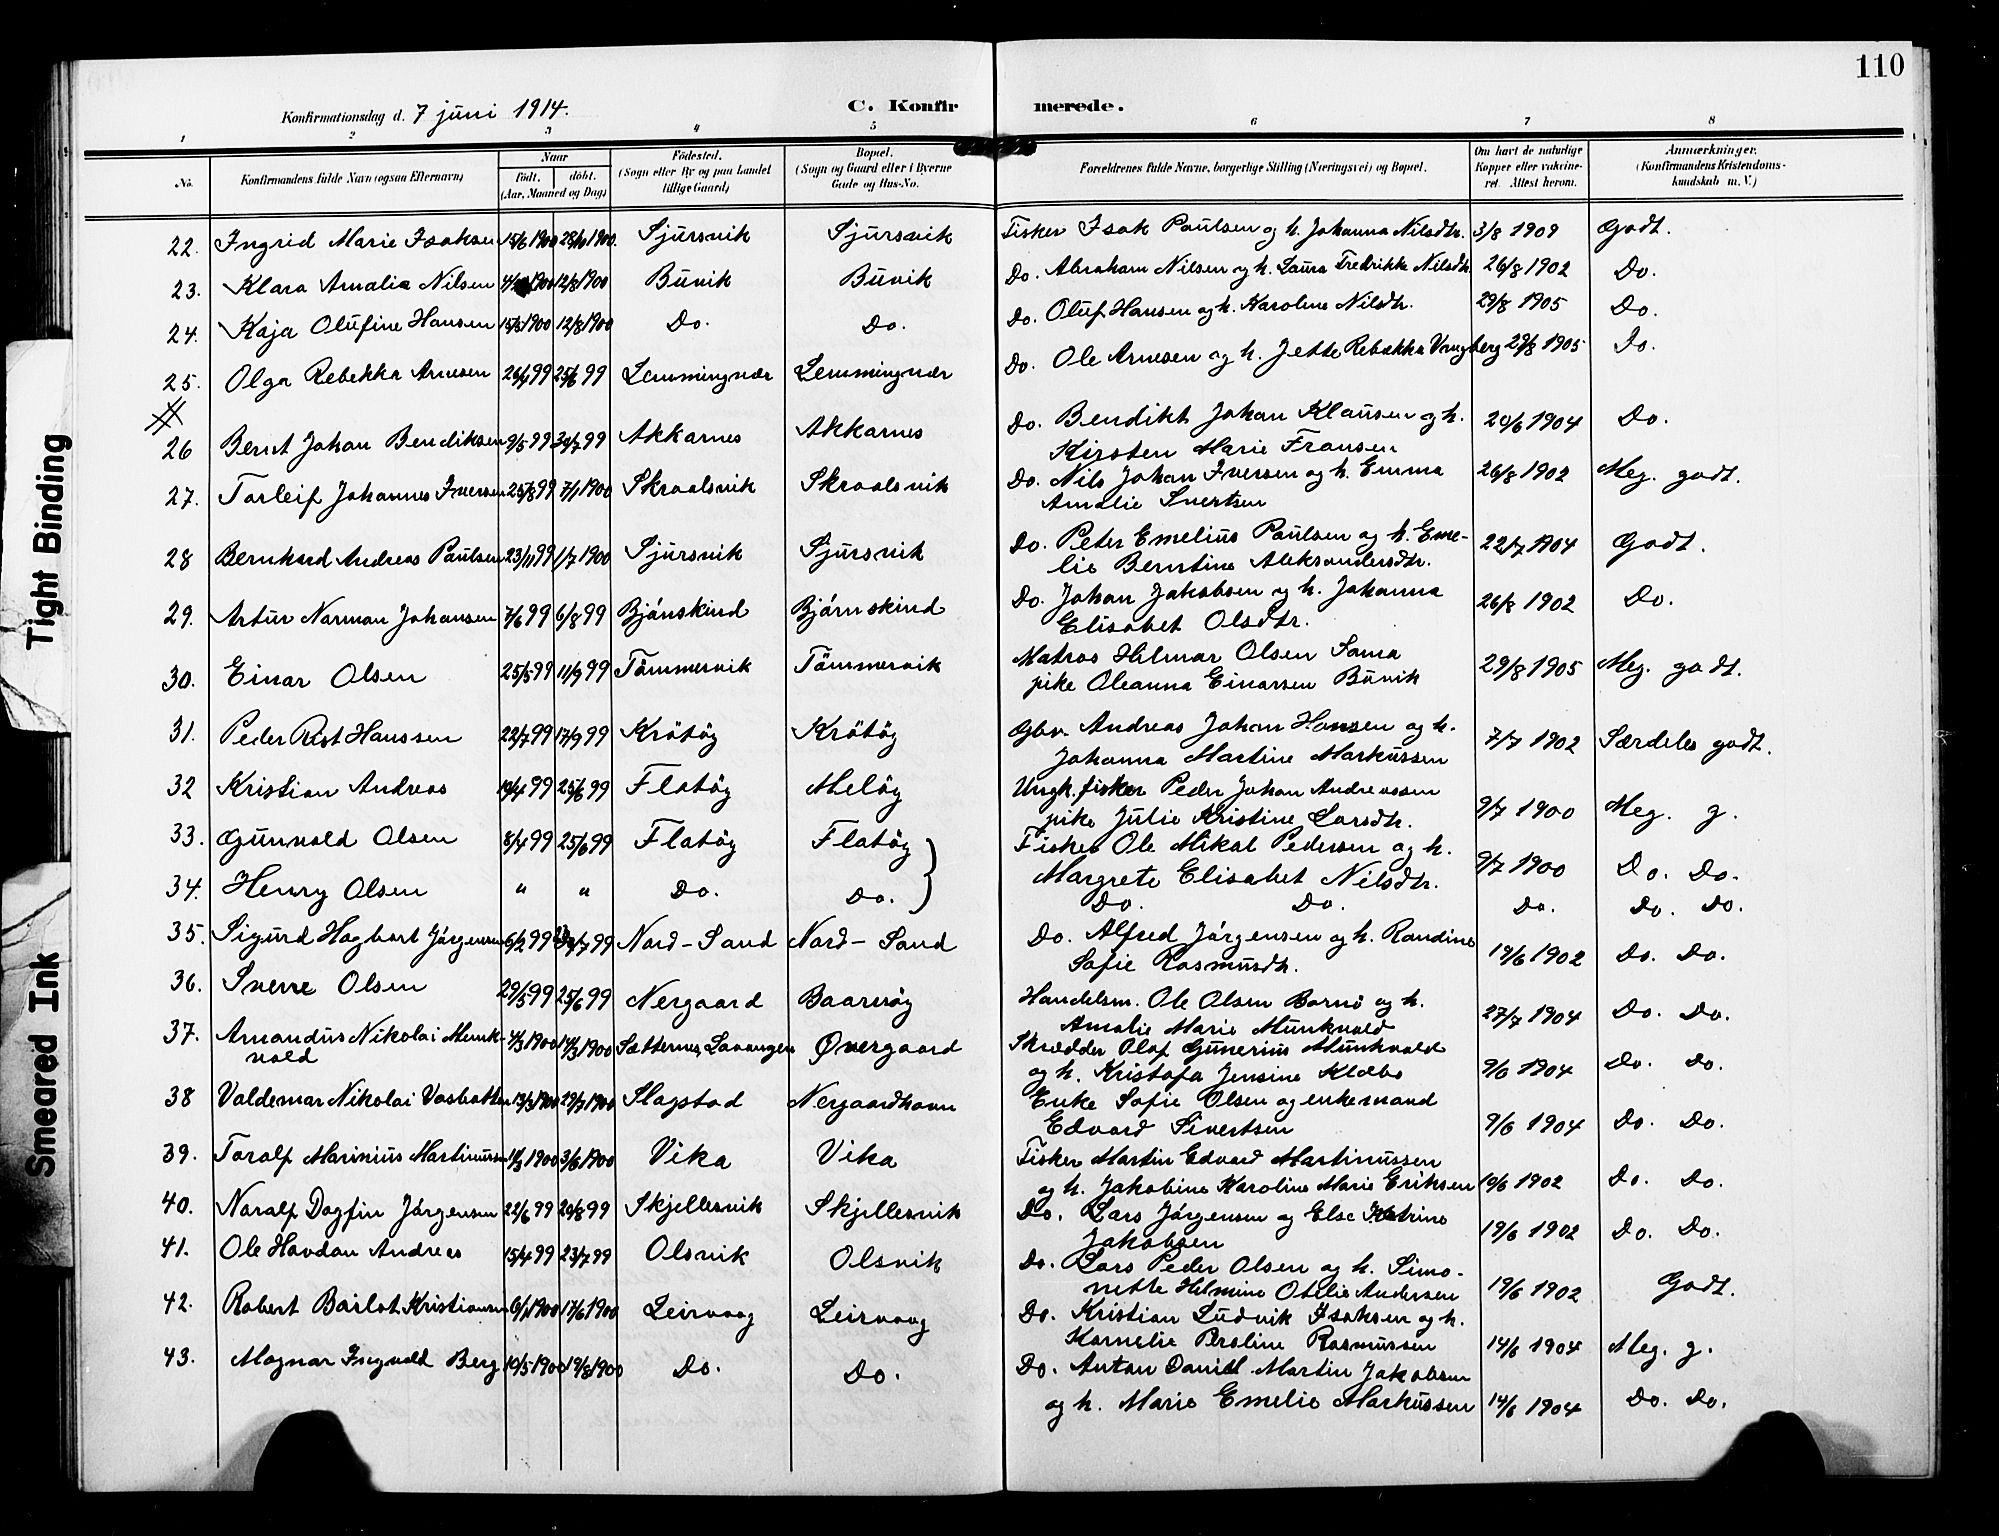 110
Konfirmationsdag d. 7 juni 1914.
C. Konfirmerede.
1 2 3 4 5 6 7 8
No. Konfirmandens fulde Navn (ogsaa Efternavn). Naar født. døbt. (Aar, Maaned og Dag) Fødested. (Sogn eller By og paa Landet tillige Gaard) Bopæl. (Sogn og Gaard eller i Byerne Gade og Hus-No. Forældrenes fulde Navne, borgerlige Stilling (Næringsvei) og Bopæl. Om havt de naturlige Kopper eller vaccineret. Attest herom. Anmærkninger. (Konfirmandens Kristendomskundskab m. V.)
22. Ingrid Marie Isaksen 15/6 1900 28/10 1900. Sjursvik Sjursvik Fisker Isak Paulsen og h. Johanna Nilsdtr. 3/8 1909 Godt.
23. Klara Amalia Nilsen 1900 12/8 1900 Buvik Buvik Do. Abraham Nilsen og h. Laura Fredrikke Nilsdtr. 26/8 1902 Do.
24. Kaja Olufine Hansen 15/3 1900 12/8 1900 Do. Do. Do. Oluf Hansen og h. Karoline Nilsdtr. 29/8 1905 Do.
25. Olga Rebekka Arnesen 26/4 99 25/6 99 Lemmingvær Lemmingvær Do. Ole Arnesen og h. Jette Rebekka Vangberg 29/8 1905 Do.
26 Bernt Johan Bendiksen 9/5 99 30/7 99 Akkarnes Akkarnes Do. Bendikt Johan Klausen og h. 20/6 1904 Do.
Kirsten Marie Fransen
27. Torleif Johannes Iversen 25/8 99 7/1 1900 Skrolsvik Skrolsvik Do. Nils Johan Iversen og h. Emma 26/8 1902 Meg. godt.
Amalie Sivertsen
28 Bernhard Andreas Paulsen 23/11 99 1/7 1900 Sjursvik Sjursvik Do. Peter Emelius Paulsen og h. Eme- 22/7 1904 Godt.
lie Berntine Aleksandersdtr.
29. Artur Norman Johansen 7/6 99 6/8 99 Bjónskind Bjórnskind Do. Johan Jakobsen og h. Johanna 26/8 1902 Do.
Elisabet Olsdtr.
30. Einar Olsen 25/5 99 11/9 99 Tömmervik Tömmervik Matros Hilmar Olsen Sama 29/8 1905 Meg. godt.
pike Oleanna Einarsen Buvik
31. Peder Rist Hanssen 22/7 99 17/9 99 Krötöy Krötöy Gbr. Andreas Johan Hansen og h. 7/7 1902 Særdeles godt.
Johanna Martine Markussen
32 Kristian Andreas 19/4 99 25/6 99 Flatöy Melöy Ungk. fisker Peder Johan Andreassen 9/7 1900 Meg. g.
pike Julie Kristine Larsdtr.
33. Gunvald Olsen 8/4 99 25/6 99 Flatöy Flatöy Fisker Ole Mikal Pedersen og h. 9/7 1900 Do. Do.
Margrete Elisabet Nilsdtr.
34. Henry Olsen " " Do. Do. Do. Do. Do. Do. Do.
35. Sigurd Hagbart Jörgensen 6/2 99 /7 99 Nord-Sand Nord-Sand Do. Alfred Jörgensen og h. Randine 19/6 1902 Do. Do.
Sofie Rasmusdtr.
36. Sverre Olsen 29/5 99 25/6 99 Nergaard Baaröy Handelsm. Ole Olsen Barnö og h. 27/7 1904 Do. Do.
Amalie Marie Munkvold
37. Amandus Nikolai Munk- 4/3 1900 14/3 1900 Sætternes, Lavangen Övergaard Skrædder Olaf Gunerius Munkvold
vold og h. Kristofa Jensine Klæbo 9/6 1904 Do. Do.
38 Valdemar Nikolai Vasbotten 13/3 1900 29/7 1900 Slagstad Nergaardhavn Enke Sofie Olsen og enkemand
Edvard Sivertsen 9/6 1904 Do. Do.
39. Toralf Marinius Martinussen 1900 3/6 1900 Vika Vika Fisker Martin Edvard Martinussen
og h. Jakobine Karoline Marie Eriksen 19/6 1902 Do. Do.
40. Noralf Dagfin Jörgensen 22/6 99 20/8 99 Skjellesvik Skjellesvik Do. Lars Jörgensen og Else Katrine
Jakobsen 19/6 1902 Do. Do.
41. Ole Havdan Andreas 15/4 99 23/7 99 Olsvik Olsvik Do. Lars Peder Olsen og h. Simo-
nette Helmine Otelie Andersen 19/6 1902 Godt.
42. Robert Barlot Kristiansen 6/1 1900 17/6 1900 Leirvaag Leirvaag Do. Kristian Ludvik Isaksen og h.
Kornelie Peroline Rasmussen 14/6 1904 Meg. g.
43. Magnar Ingvald Berg 10/5 1900 19/8 1900 Do. Do. Do. Anton Daniel Martin Jakobsen
og h. Marie Emelie Markussen 14/6 1904 Do. Do.
Tight Binding
Smeared Ink